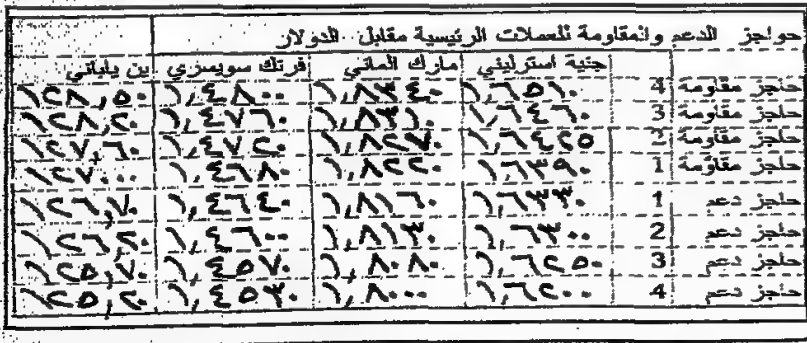 حواجز الدعم والمقاومة للعملات الرئيسية مقابل الدولار
جنية استرليني مارك الماني فرنك سويسري ين ياباني
حاجز مقاومة 4 ١,٦٥١٠ ١,٨٣٤٠ ١,٤٨٠٠ ١٢٨,٥٠
حاجز مقاومة 3 ١,٦٤٦٠ ١,٨٣١٠ ١,٤٧٦٠ ١٢٨,٢٠
حاجز مقاومة 2 ١,٦٤٢٥ ١,٨٢٧٠ ١,٤٧٢٠ ١٢٧,٦٠
حاجز مقاومة 1 ١,٦٣٩٠ ١,٨٢٢٠ ١,٤٦٨٠ ١٢٧,٠٠
حاجز دعم 1 ١,٦٣٣٠ ١,٨١٦٠ ١,٤٦٤٠ ١٢٦,٧٠
حاجز دعم 2 ١,٦٣٠٠ ١,٨١٣٠ ١,٤٦٠٠ ١٢٦,٢٠
حاجز دعم 3 ١,٦٢٥٠ ١,٨٠٨٠ ١,٤٥٧٠ ١٢٥,٧٠
حاجز دعم 4 ١,٦٢٠٠ ١,٨٠٠٠ ١,٤٥٣٠ ١٢٥,٢٠